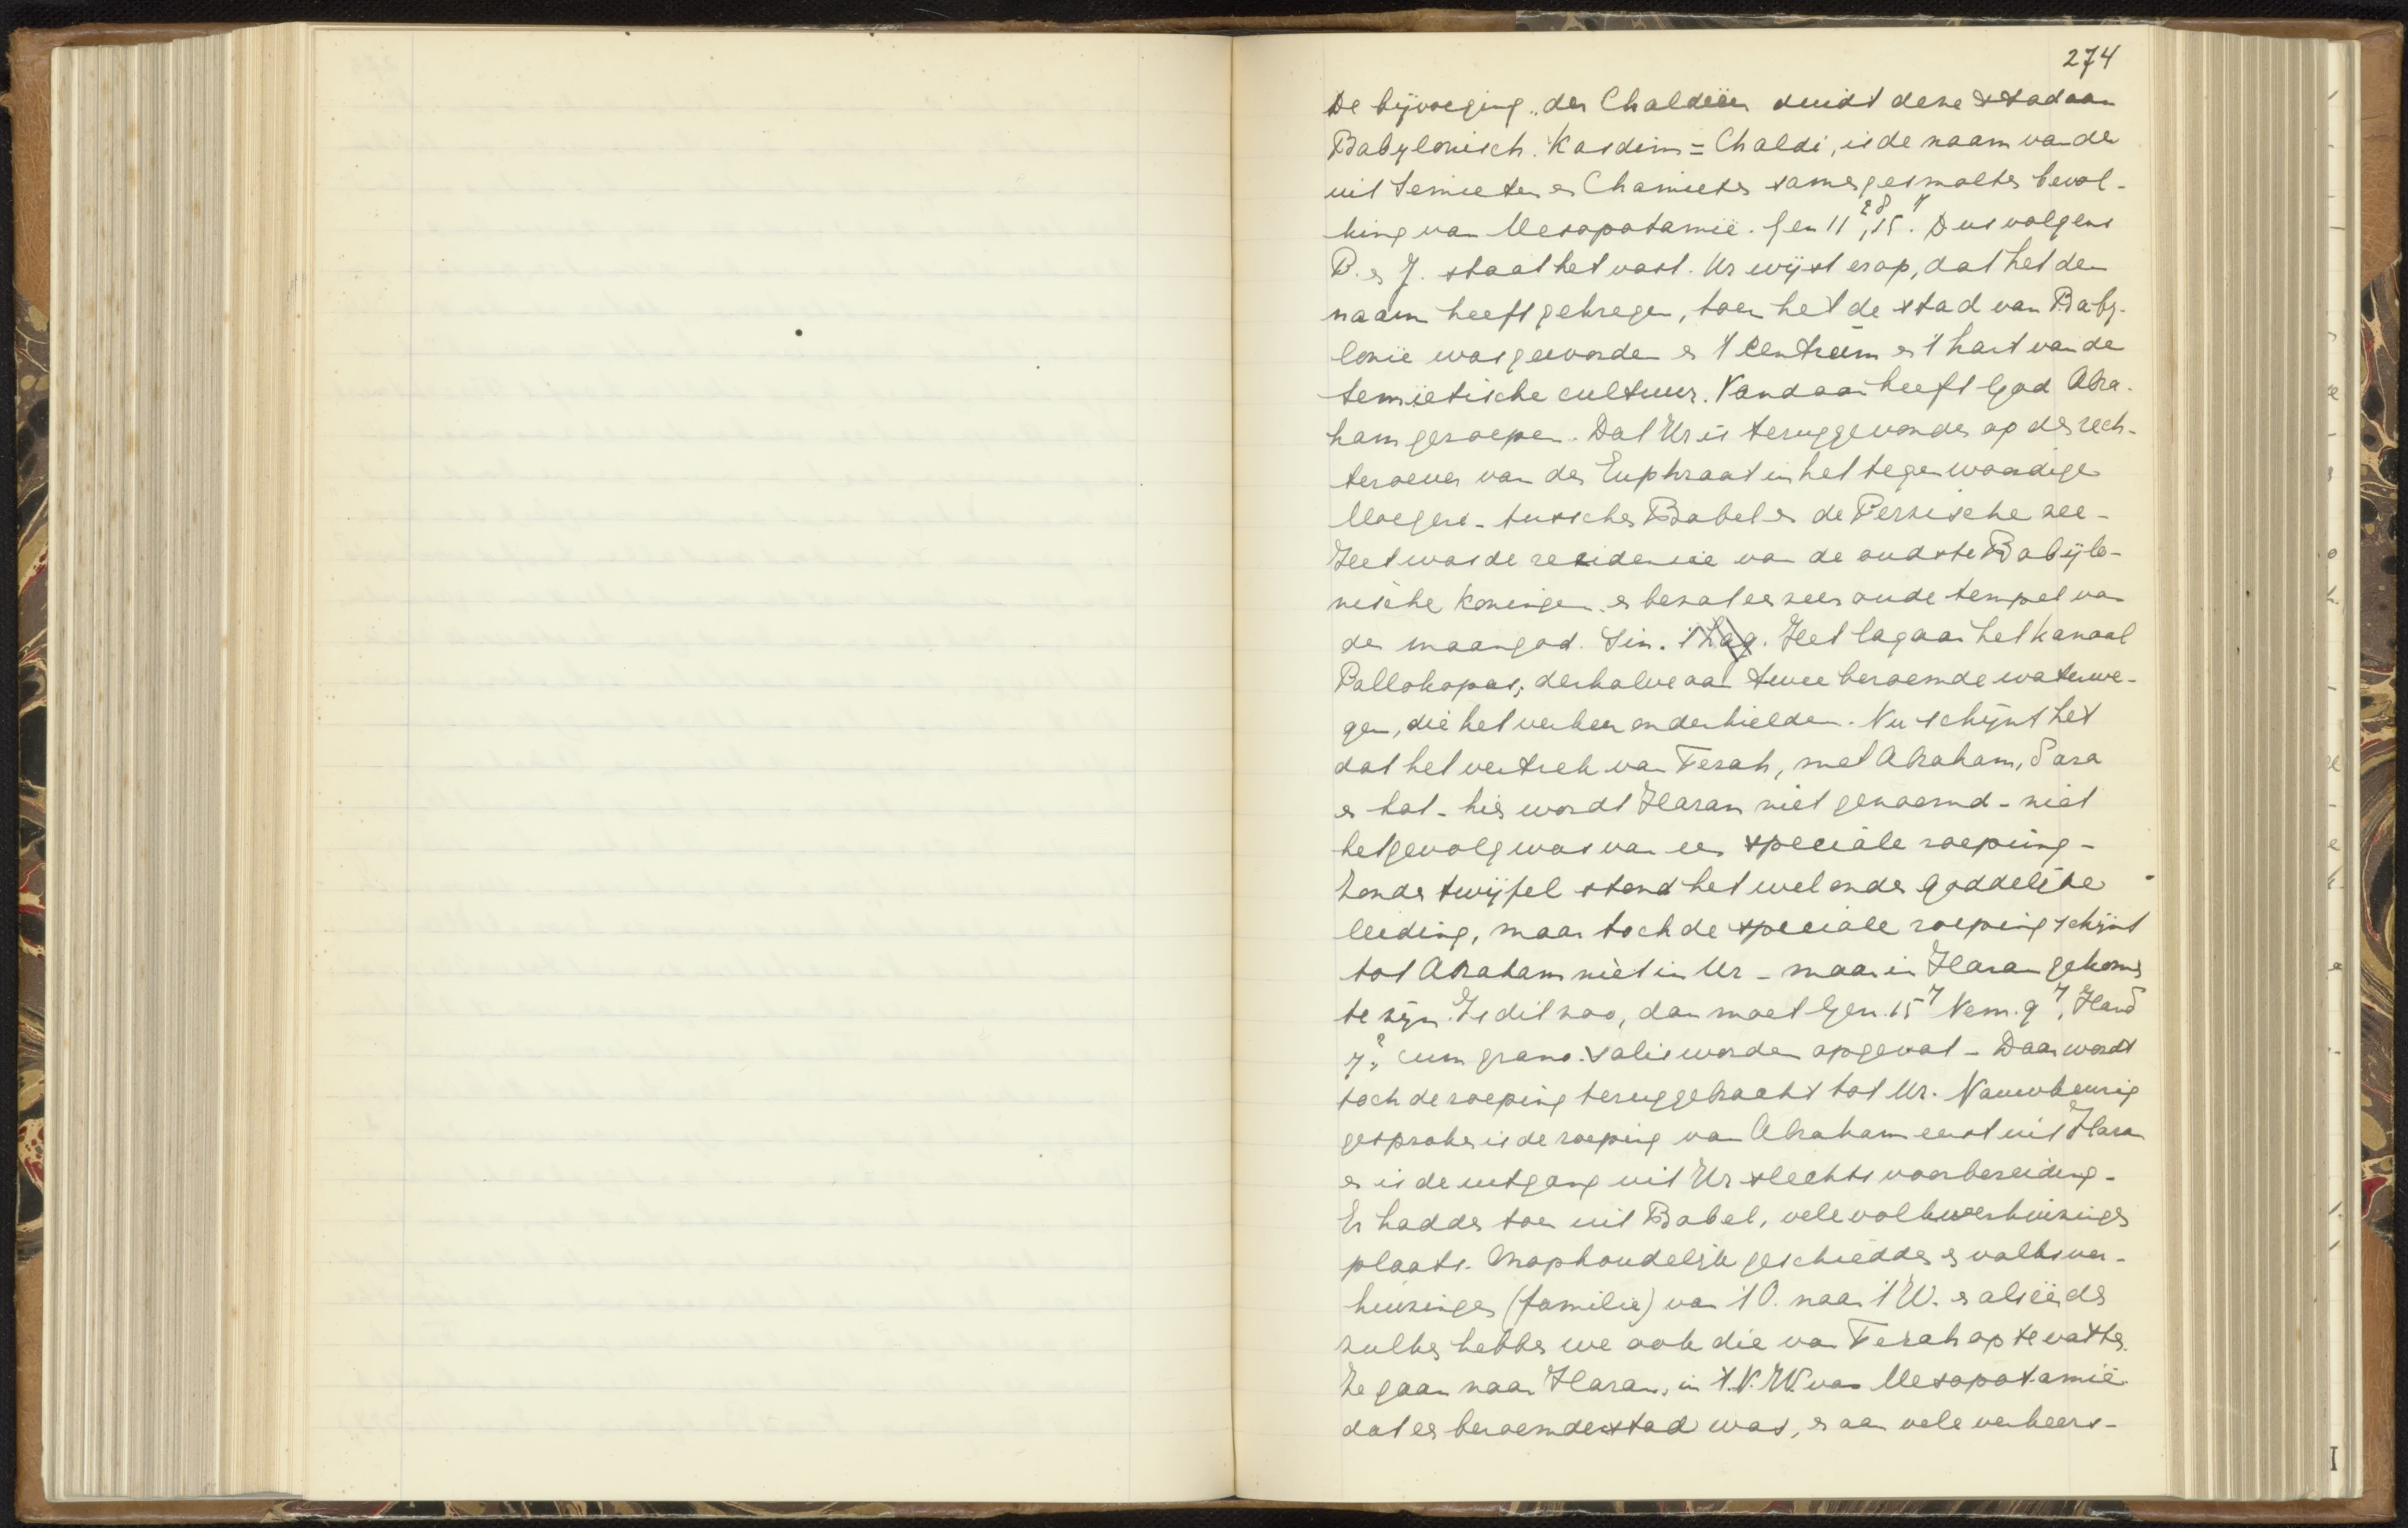 274
De bijvoeging „der Chaldeën duidt deze stad aan
Babylonisch. Kasdim = Chaldi, is de naam van de
uit Semieten en Chamieten samengesmolten bevol-
king van Mesopotamië. Gen 11²⁸, 15⁷. Dus volgens
P. en J. staat het vast. Ur wijst erop, dat het den
naam heeft gekregen, toen het de stad van Baby-
lonië was geworden en 't centrum en 't hart van de
semietische cultuur. Vandaar heeft God Abra-
ham geroepen. Dat Ur is teruggevonden op den rech-
teroever van den Euphraat in het tegenwoordige
Moegeir - tusschen Babel en de Perzische zee -
Het was de residencie van de oudste Babijlo-
nische koningen en bezat een zeer oude tempel van
den maangod. Sin. 't Lag. Het lag aan het kanaal
Pallokopas; derhalve aan twee beroemde waterwe-
gen, die het verkeer onderhielden. Nu schijnt het
dat het vertrek van Terah, met Abraham, Sara
en Lot - hier wordt Haran niet genoemd - niet
het gevolg was van een speciale roeping -
Zonder twijfel stond het wel onder goddelijke
leiding, maar toch de speciale roeping schijnt
tot Abraham niet in Ur - maar in Haran gekomen
te zijn. Is dit zoo, dan moet Gen. 15⁷ Nem. 9⁷, Hand
7², cum grano salis worden opgevat - Daar wordt
toch de roeping teruggebracht tot Ur. Nauwkeurig
gesproken is de roeping van Abraham eerst uit Haran
en is de uitgang uit Ur slechts voorbereiding -
Er hadden toen uit Babel, vele volksverhuizingen
plaats. Onophoudelijk geschiedden er volksver-
huizingen (familie) van 't O. naar 't W. en als een der
zulke hebben we ook die van Terah op te vatten.
Ze gaan naar Haran, in 't N. W. van Mesopotamië
dat een beroemde stad was, en aan vele verkeers-